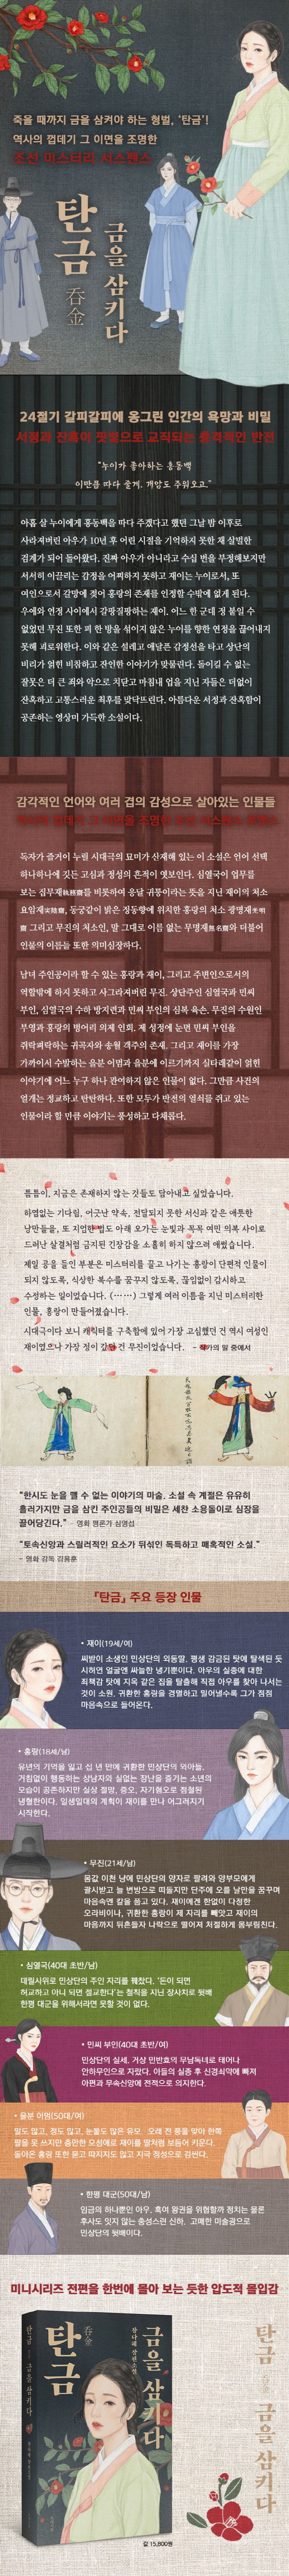 죽을 때까지 금을 삼켜야 하는 형벌, ‘탄금’!
역사의 껍데기 그 이면을 조명한
조선 미스터리 서스펜스
탄금
呑金
금을 삼키다
24절기 갈피갈피에 웅그린 인간의 욕망과 비밀
서정과 잔혹이 핏빛으로 교직되는 충격적인 반전
“누이가 좋아하는 홍동백
이만큼 따다 줄게. 개암도 주워오고.”
아홉 살 누이에게 홍동백을 따다 주겠다고 했던 그날 밤 이후로
사라져버린 아우가 10년 후 어린 시절을 기억하지 못한 채 살벌한
검계가 되어 돌아왔다. 진짜 아우가 아니라고 수십 번을 부정해보지만
서서히 이끌리는 감정을 어찌하지 못하고 재이는 누이로서, 또
여인으로서 갈망에 젖어 홍랑의 존재를 인정할 수밖에 없게 된다.
우애와 연정 사이에서 갈팡질팡하는 재이, 어느 한 군데 정 붙일 수
없었던 무진 또한 피 한 방울 섞이지 않은 누이를 향한 연정을 끊어내지
못해 괴로워한다. 이와 같은 설레고 애달픈 감정선을 타고 상단의
비리가 얽힌 비참하고 잔인한 이야기가 맞물린다. 돌이킬 수 없는
잘못은 더 큰 죄와 악으로 치닫고 마침내 업을 지닌 자들은 더없이
잔혹하고 고통스러운 최후를 맞닥뜨린다. 아름다운 서정과 잔혹함이
공존하는 영상미 가득한 소설이다.
감각적인 언어와 여러 겹의 감성으로 살아있는 인물들
독자가 즐겨이 누릴 시대극의 묘미가 산재해 있는 이 소설은 언어 선택
하나하나에 짓든 고심과 정성의 흔적이 엿보인다. 심열국이 업무를
보는 집무재執務齋를 비롯하여 응달 귀퉁이라는 뜻을 지닌 재이의 처소
요암재突陰齋, 동궁같이 밝은 정동향에 위치한 홍랑의 처소 광명재光明
齋 그리고 무진의 처소인, 말 그대로 이름 없는 무명재無名齋와 더불어
인물의 이름들 또한 의미심장하다.
남녀 주인공이라 할 수 있는 홍랑과 재이, 그리고 주변인으로서의
역할밖에 하지 못하고 사그라져버린 무진, 상단주인 심열국과 민씨
부인, 심열국의 수하 방지련과 민씨 부인의 심복 육손, 무진의 수원인
부영과 홍랑의 벙어리 의제 인회, 제 성정에 눈먼 민씨 부인을
쥐락펴락하는 귀곡자와 송월 객주의 존재, 그리고 재이를 가장
가까이서 수발하는 을분 어멈과 을분에 이르기까지 실타래같이 얽힌
이야기에 어느 누구 하나 관여하지 않은 인물이 없다. 그만큼 사건의
얼개는 정교하고 탄탄하다. 또한 모두가 반전의 열쇠를 쥐고 있는
인물이라 할 만큼 이야기는 풍성하고 다채롭다.
틈틈이, 지금은 존재하지 않는 것들도 담아내고 싶었습니다.
하염없는 기다림, 어긋난 약속, 전달되지 못한 서신과 같은 애틋한
낭만들을, 또 지엄한 법도 아래 오가는 눈빛과 꼭꼭 여민 의복 사이로
드러난 살결처럼 금지된 긴장감을 소홀히 하지 않으려 애썼습니다.
제일 공을 들인 부분은 미스터리를 끌고 나가는 홍랑이 단편적 인물이
되지 않도록, 식상한 복수를 꿈꾸지 않도록, 끊임없이 감시하고
수정하는 일이었습니다. (……) 그렇게 여러 이름을 지닌 미스터리한
인물, 홍랑이 만들어졌습니다.
시대극이다 보니 캐릭터를 구축함에 있어 가장 고심했던 건 역시 여성인
재이였으나 가장 정이 갔던 건 무진이었습니다. - 작가의 말 중에서
“한시도 눈을 뗄 수 없는 이야기의 마술. 소설 속 계절은 유유히
흘러가지만 금을 삼킨 주인공들의 비밀은 세찬 소용돌이로 심장을
끌어당긴다.” - 영화 평론가 심영섭
“토속신앙과 스릴러적인 요소가 뒤섞인 독특하고 매혹적인 소설.”
- 영화 감독 김용훈
『탄금』 주요 등장 인물
• 재이(19세/여)
씨받이 소생인 민상단의 외동딸. 평생 감금된 탓에 탈색된 듯
시허연 얼굴엔 싸늘한 냉기뿐이다. 아우의 실종에 대한
죄책감 탓에 지옥 같은 집을 탈출해 직접 아우를 찾아 나서는
것이 소원. 귀환한 홍랑을 경멸하고 밀어낼수록 그가 점점
마음속으로 들어온다.
• 홍랑(18세/남)
유년의 기억을 잃고 십 년 만에 귀환한 민상단의 외아들.
거침없이 행동하는 상남자의 실없는 장난을 즐기는 소년의
모습이 공존하지만 실상 절망, 증오, 자기혐오로 점철된
냉혈한이다. 일생일대의 계획이 재이를 만나 어그러지기
시작한다.
• 무진(21세/남)
몸값 이천 냥에 민상단의 양자로 팔려와 양부모에게
괄시받고 늘 변방으로 떠돌지만 단주에 오를 날만을 꿈꾸며
마음속엔 칼을 품고 있다. 재이에겐 한없이 다정한
오라비이나, 귀환한 홍랑이 제 자리를 빼앗고 재이의
마음까지 뒤흔들자 나락으로 떨어져 처절하게 몸부림친다.
• 심열국(40대 초반/남)
데릴사위로 민상단의 주인 자리를 꿰찼다. ‘돈이 되면
허교하고 아니 되면 절교한다’는 철칙을 지닌 장사치로 뒷배
한평 대군을 위해서라면 못할 것이 없다.
• 민씨 부인(40대 초반/여)
민상단의 실세. 거상 민반효의 무남독녀로 태어나
안하무인으로 자랐다. 아들의 실종 후 신경쇠약에 빠져
아편과 무속신앙에 전적으로 의지한다.
• 을분 어멈(50대/여)
말도 많고, 정도 많고, 눈물도 많은 유모. 오래 전 풍을 맞아 한쪽
팔을 못 쓰지만 충만한 모성애로 재이를 딸처럼 보듬어 키운다.
돌아온 홍랑 또한 묻고 따지지도 않고 지극 정성으로 섬긴다.
• 한평 대군(50대/남)
임금의 하나뿐인 아우. 혹여 왕권을 위협할까 정치는 물론
후사도 잇지 않는 충성스런 신하. 고매한 미술광으로
민상단의 뒷배이다.
미니시리즈 전편을 한번에 몰아 보는 듯한 압도적 몰입감
탄금
呑金
금을 삼키다
장다혜 장편소설
탄금
금을 삼키다
값 15,800원